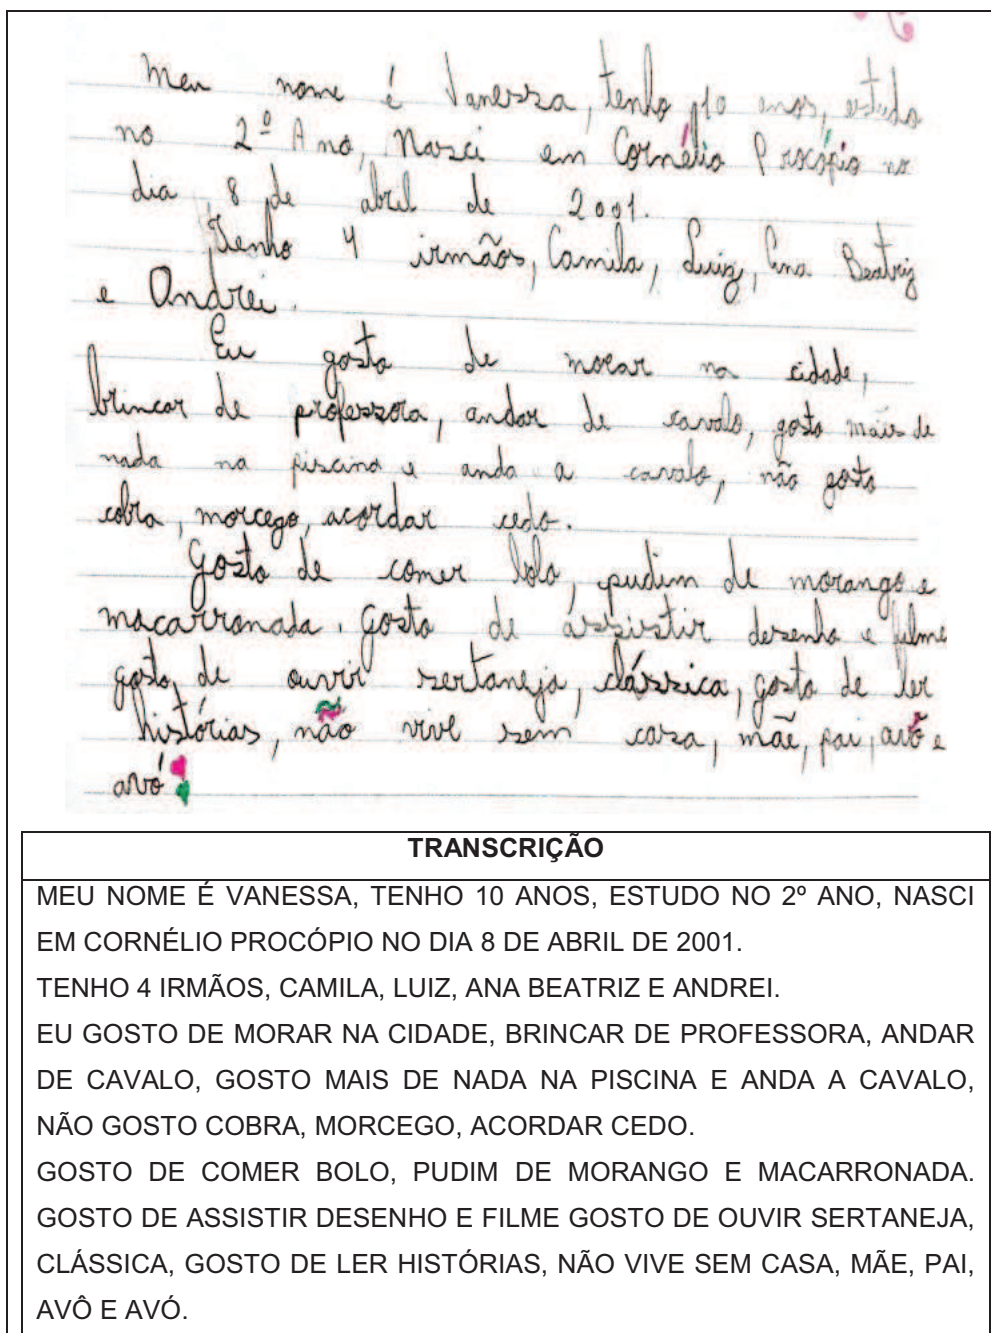 Meu nome é Vanessa, tenho 10 anos, estudo
no 2º Ano, Nasci em Cornélio Procópio no
dia 8 de abril de 2001.
Tenho 4 irmãos, Camila, Luiz, Ana Beatriz
e Andrei.
Eu gosto de morar na cidade,
brincar de professora, andar de cavalo, gosto mais de
nada na piscina e anda a cavalo, não gosto
cobra, morcego, acordar cedo.
Gosto de comer bolo, pudim de morango e
macarronada. Gosto de assistir desenho e filme
gosto de ouvir sertaneja, clássica, gosto de ler
histórias, não vive sem casa, mãe, pai, avô e
avó
TRANSCRIÇÃO
MEU NOME É VANESSA, TENHO 10 ANOS, ESTUDO NO 2º ANO, NASCI
EM CORNÉLIO PROCÓPIO NO DIA 8 DE ABRIL DE 2001.
TENHO 4 IRMÃOS, CAMILA, LUIZ, ANA BEATRIZ E ANDREI.
EU GOSTO DE MORAR NA CIDADE, BRINCAR DE PROFESSORA, ANDAR
DE CAVALO, GOSTO MAIS DE NADA NA PISCINA E ANDA A CAVALO,
NÃO GOSTO COBRA, MORCEGO, ACORDAR CEDO.
GOSTO DE COMER BOLO, PUDIM DE MORANGO E MACARRONADA.
GOSTO DE ASSISTIR DESENHO E FILME GOSTO DE OUVIR SERTANEJA,
CLÁSSICA, GOSTO DE LER HISTÓRIAS, NÃO VIVE SEM CASA, MÃE, PAI,
AVÔ E AVÓ.